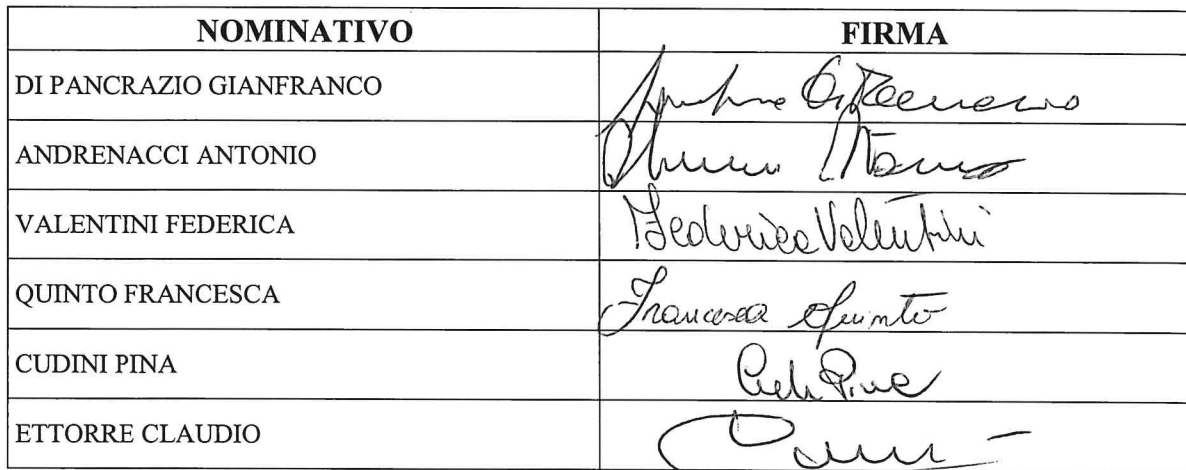 NOMINATIVO FIRMA
DI PANCRAZIO GIANFRANCO
ANDRENACCI ANTONIO
VALENTINI FEDERICA Federica Valentini
QUINTO FRANCESCA Francesca Quinto
CUDINI PINA Pina
ETTORRE CLAUDIO